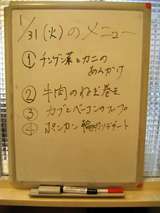 1/31(火)のメニュー
① チンゲン菜とカニの
あんかけ
② 牛肉のねぎ巻き
③ カブとベーコンのスープ
④ ポンカン